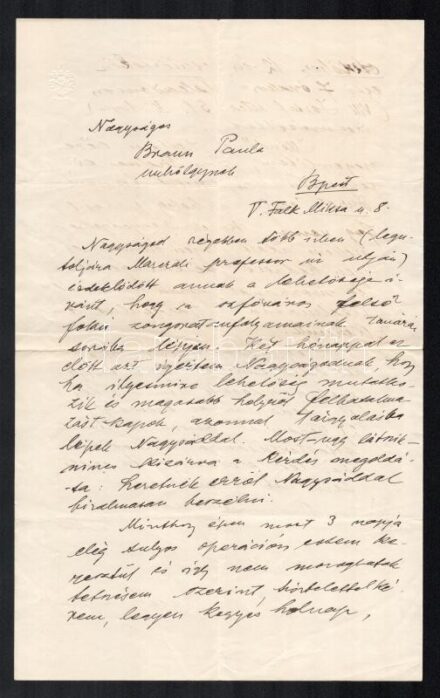 Nagyságos
Braun Paula
urhölgynek
Bpest
V. Falk Miksa u. 8.
Nagyságod régebben több izben (legu-
toljára professor úr utján)
érdeklődött annak a lehetősége i-
ránt, hogy a székfőváros felső
foku zongoratanfolyamainak tanári
sorába lépjen. Két hónappal ez
előtt azt igértem Nagyságodnak hogy
ha ilyesmire lehetőség mutatko-
zik és magasabb helyről felhatalma
zást kapok, azonnal tárgyalásba
lépek Nagysáddal. Most úgy látszik
nincs kizárva a kérdés megoldá-
sa: szeretnék erről Nagysáddal
bizalmasan beszélni.
Minthogy épen most 3 napja
elég sulyos operáción estem ke-
resztül és így nem mozoghatok
tetszésem szerint tisztelettel ké-
rem, legyen kegyes holnap,